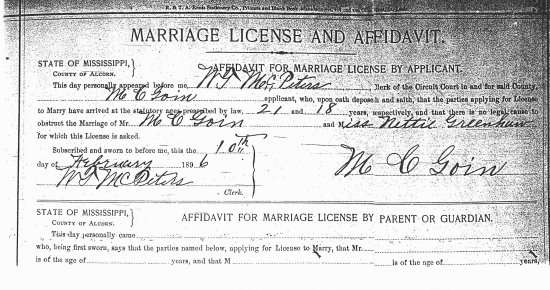 MARRIAGE LICENSE AND AFFIDAVIT.
STATE OF MISSISSIPPI,
COUNTY OF ALCORN.
AFFIDAVIT FOR MARRIAGE LICENSE BY APPLICANT.
This day personally appeared before me, W T McPeters Clerk of the Circuit Court in and for said County,
M C Goin applicant, who, upon oath deposeth and saith, that the parties applying for License
to Marry have arrived at the statutory ages prescribed by law, 21 and 18 years, respectively, and that there is no legal cause to
obstruct the Marriage of Mr. M C Goin and Miss Nettie Greenhaw
for which this License is asked.
Subscribed and sworn to before me, this the 10th
day of February 1896
M C Goin
W T McPeters
Clerk.
STATE OF MISSISSIPPI,
COUNTY OF ALCORN.
AFFIDAVIT FOR MARRIAGE LICENSE BY PARENT OR GUARDIAN.
This day personally came
who, being first sworn, says that the parties named below, applying for License to Marry, that Mr.
is of the age of years, and that M is of the age of years,